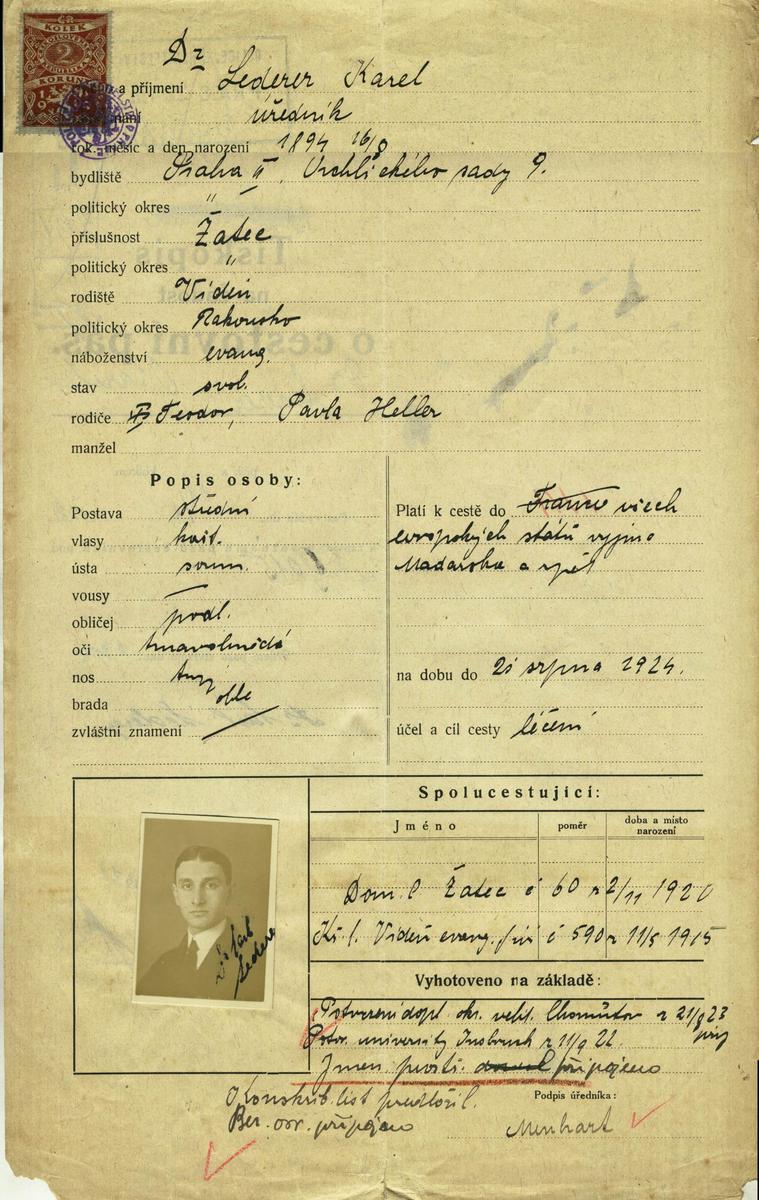 ČR
KOLEK
2
KORUNY
Dr
a příjmení Lederer Karel
úředník
rok, měsíc a den narození 1894 16/8
bydliště Praha II, Vrchlického sady 9.
politický okres "
příslušnost Žatec
politický okres "
rodiště Vídeň
politický okres Rakousko
náboženství evang.
stav svob.
rodiče Teodor, Pavla Heller
manžel
Popis osoby:
Postava střední
vlasy kašt.
ústa soum.
vousy —
obličej podl.
oči tmavohnědé
nos
brada oblé
zvláštní znamení /
Platí k cestě do Francie všech
evropských států vyjma
Maďarska a zpět
na dobu do srpna 1924.
účel a cíl cesty léčení
Spolucestující:
Jméno
poměr
doba a místo narození
Dom. l. Žatec č 60 z 2/11 1920
Kř. l. Vídeň evang. č 590 z 11/5 1915
Dr Karl
Lederer
Vyhotoveno na základě:
Potvrzení dopl. okr. velit. Chomutov z 21/8 23
Potvr. university Insbruck z 11/9 22.
Jmen připojeno
Konskrib. list předložil.
Ber. osv. připojeno
Podpis úředníka:
Menhart